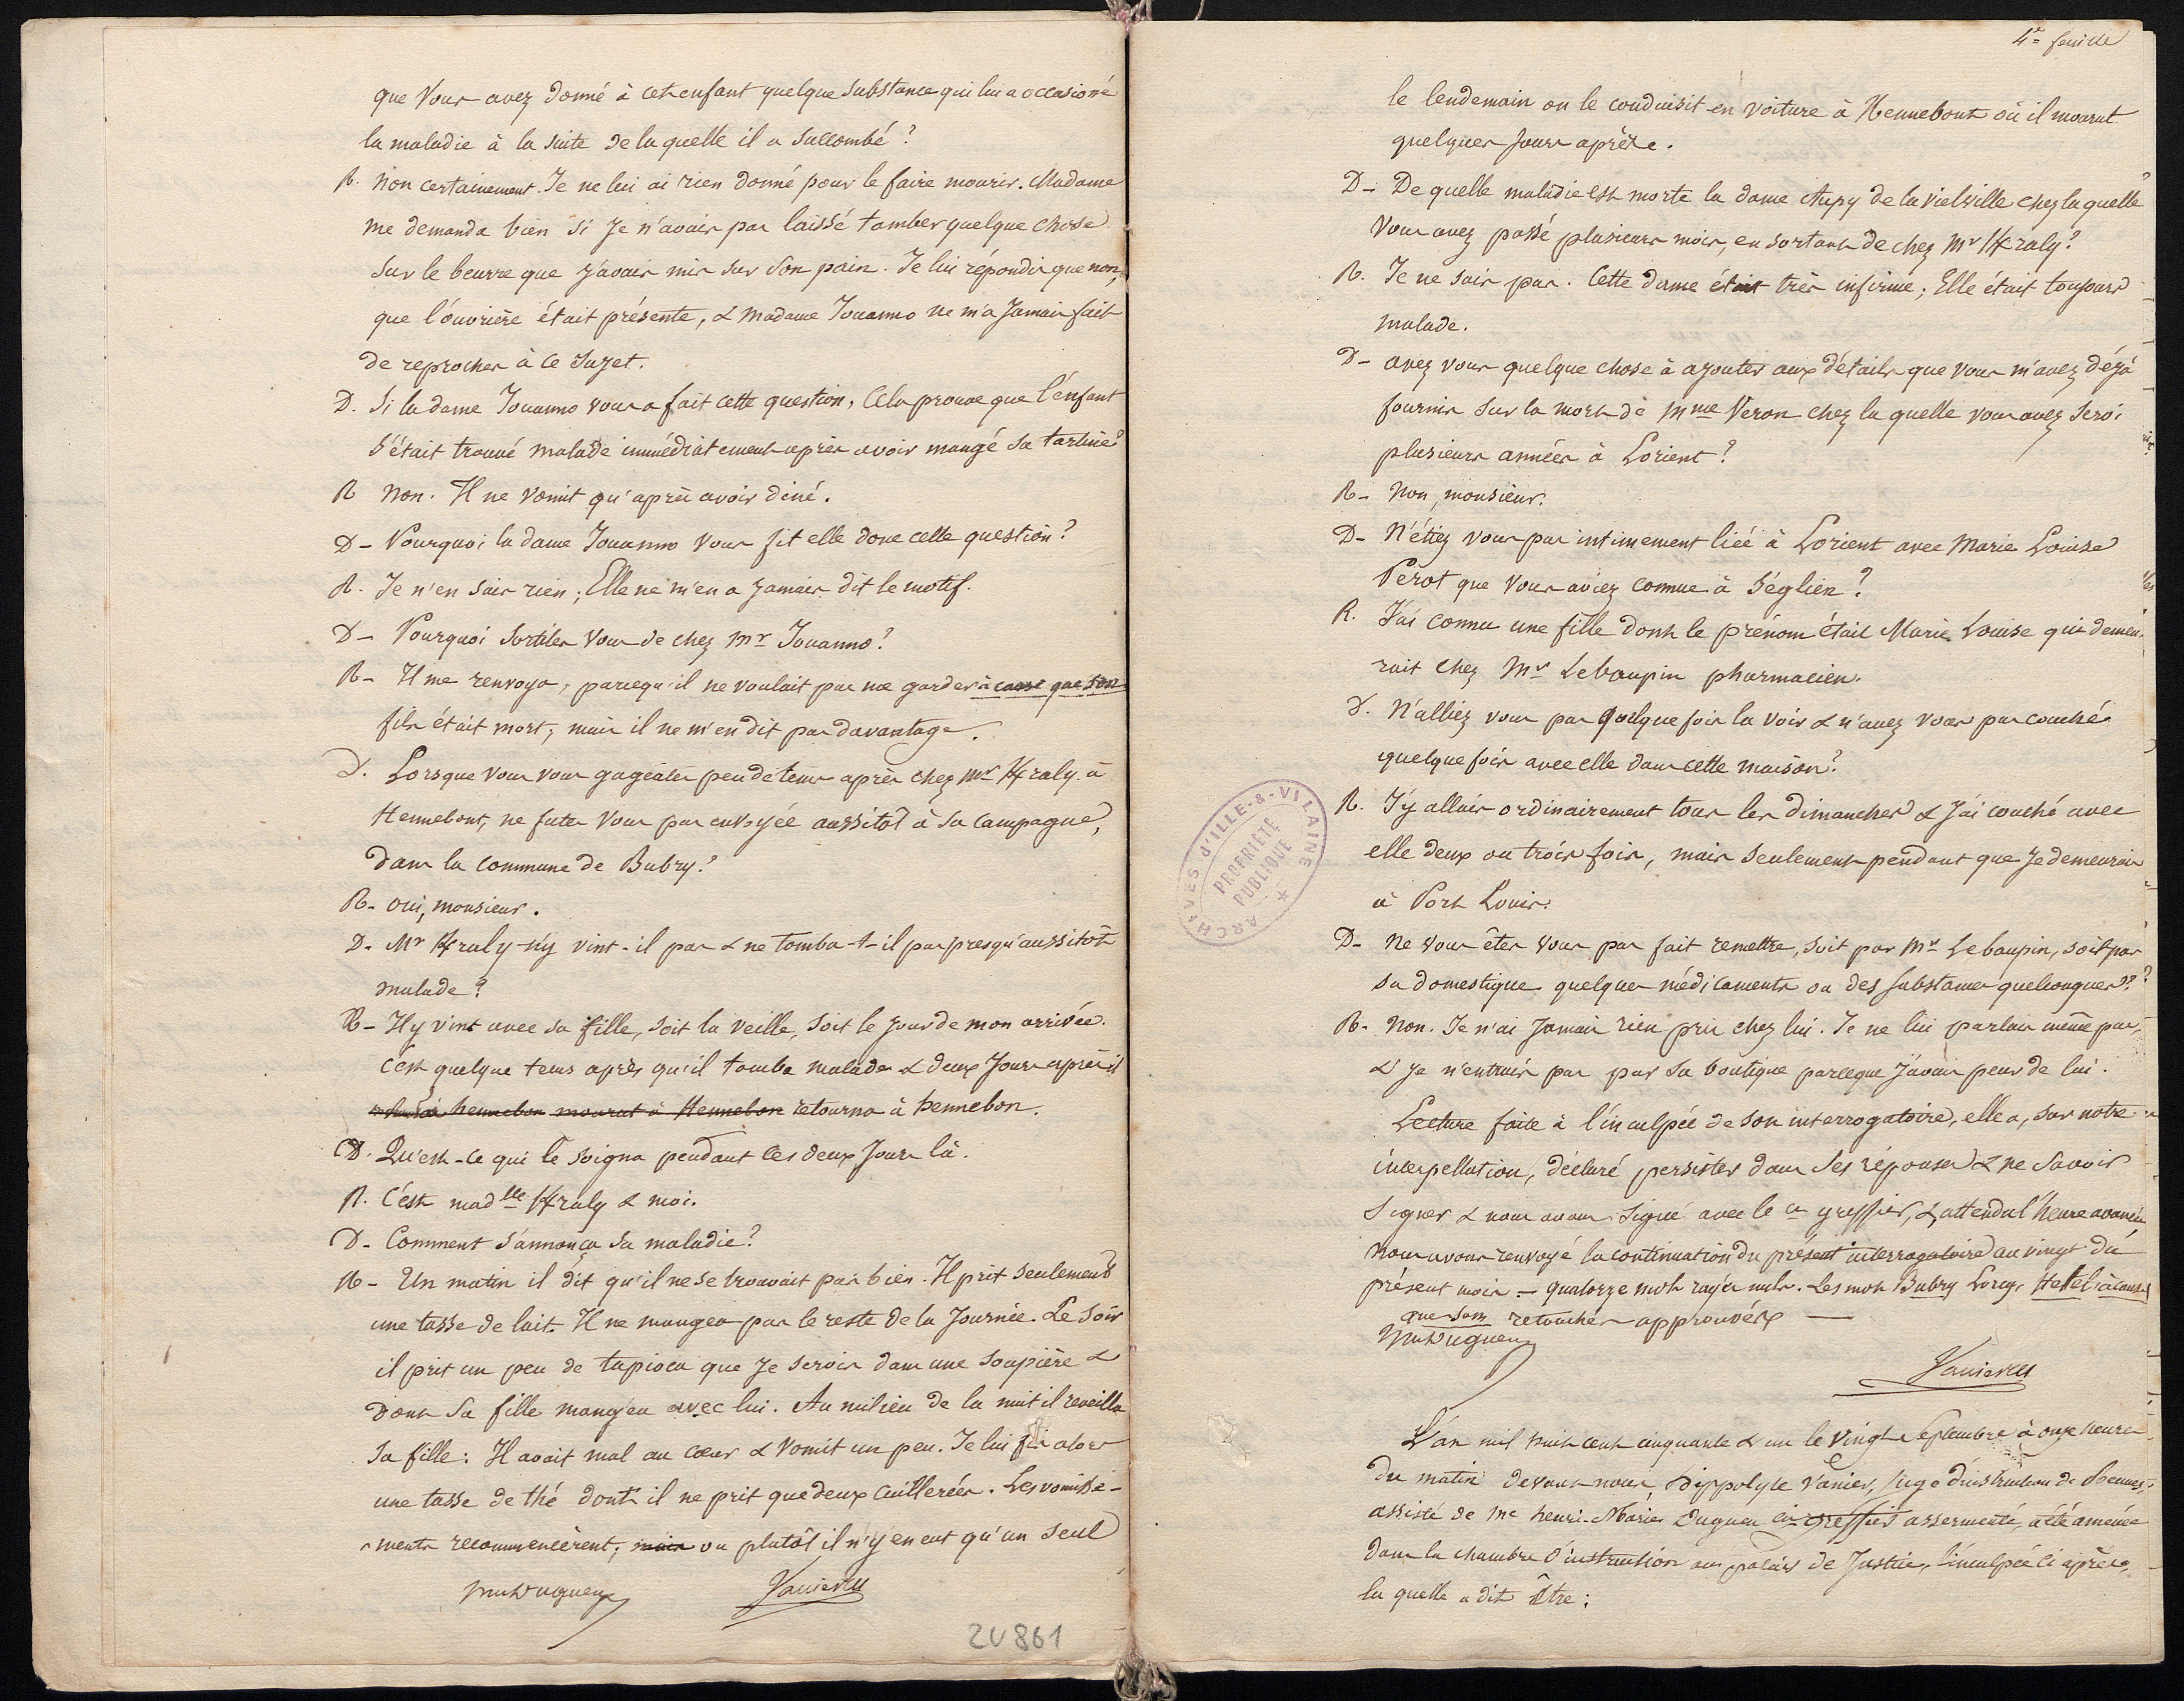 que Vous avez donné à cet enfant quelque substance qui lui a occasioné
la maladie à la suite de laquelle il a succombé ?
R. Non certainement. Je ne lui ai rien donné pour le faire mourir. Madame
me demanda bien si Je n'avais pas laissé tomber quelque chose
sur le beurre que J'avais mis sur son pain. Je lui répondis que non,
que l'ouvrière était présente, & madame Jouanno ne m'a Jamais fait
de reproches à ce sujet.
D. Si la dame Jouanno vous a fait cette question, Cela prouve que l'énfant
s'était trouvé malade immédiatement après avoir mangé sa tartine ?
R Non. Il ne vomit qu'après avoir diné.
D - Pourquoi la dame Jouanno Vous fit elle donc cette question ?
R. Je n'en sais rien ; Elle ne m'en a Jamais dit le motif.
D - Pourquoi sortites Vous de chez Mr Jouanno ?
R - Il me renvoya, parcequ'il ne voulait pas me garder à cause que son
fils était mort ; mais il ne m'en dit pas davantage.
D. Lorsque vous vous gageates peu de tems après chez Mr Kraly à
Hennebont, ne futes Vous pas envoyée aussitôt à sa Campagne,
dans la Commune de Bubry ?
R - Oui, monsieur.
D - Mr Kraly n'y vint-il pas & ne tomba-t-il pas presqu'aussitôt
malade ?
R - Il y vint avec sa fille, soit la veille, soit le Jour de mon arrivée.
C'est quelque tems après qu'il tomba malade & deux Jours après il
hennebon mourut à Hennebon retourna à hennebon.
D. Qu'est-ce qui le soigna pendant ces deux Jours là.
R. C'est madlle Kraly & moi.
D - Comment s'annonça sa maladie ?
R - Un matin il dit qu'il ne se trouvait pas bien. Il prit seulement
une tasse de lait. Il ne mangea pas le reste de la Journée. Le soir
il prit un peu de tapioca que Je servis dans une soupière &
dont sa fille mangea avec lui. Au milieu de la nuit il reveilla
sa fille : Il avait mal au cœur & vomit un peu. Je lui fis alors
une tasse de thé dont il ne prit que deux Cuillerées. Les vomisse-
ments recommencèrent ; mais ou plutôt il n'y en eut qu'un seul
2U861
4e feuille
le lendemain on le conduisit en voiture à Hennebont où il mourut
quelques Jours après.
D - De quelle maladie est morte la dame Aupy de la Vielville chez laquelle
Vous avez passé plusieurs mois, en sortant de chez Mr Kraly ?
R. Je ne sais pas. Cette dame était très infirme ; Elle était toujours
malade.
D - avez vous quelque chose à ajouter aux détails que vous m'avez déjà
fournis sur la mort de Mme Veron chez laquelle vous avez servi
plusieurs années à Lorient ?
R - Non, monsieur.
D - N'étiez vous pas intimement liée à Lorient avec Marie Louise
Perot que Vous aviez connue à Séglien ?
R. J'ai connu une fille dont le prénom était Marie Louise qui demeu-
rait chez Mr Lebaupin pharmacien.
D. N'alliez vous pas quelque fois la voir & n'avez vous pas couché
quelquefois avec elle dans cette maison ?
R. J'y allais ordinairement tous les dimanches & J'ai couché avec
elle deux ou trois fois, mais seulement pendant que Je demeurais
à Port Louis.
D - Ne vous êtes vous pas fait remettre, soit par Mr Lebaupin, soit par
sa domestique quelques médicaments ou des substances quelconques ?
R - Non. Je n'ai Jamais rien pris chez lui. Je ne lui parlais même pas,
& Je n'entrais pas par sa boutique parceque J'avais peur de lui.
Lecture faite à l'inculpée de son interrogatoire, elle a, sur notre
interpellation, déclaré persister dans ses réponses & ne savoir
signer & nous avons signé avec le cis greffier, & attendu l'heure avancée
nous avons renvoyé la continuation du présent interrogatoire au vingt du
présent mois. — quatorze mots rayés nuls. Les mots Bubry à cause
que son retouchés approuvés —
Vanier
L'an mil huit cent cinquante & un le vingt Septembre à onze heures
du matin devant nous hippolyte Vanier, Juge d'instruction de Rennes,
assisté de Me henri-Marie Duguen cis greffier assermenté, a été amenée
dans la chambre d'instruction au palais de Justice, l'inculpée ci après,
la quelle a dit être :
ARCHIVES D'ILLE-&-VILAINE
PROPRIÉTÉ
PUBLIQUE